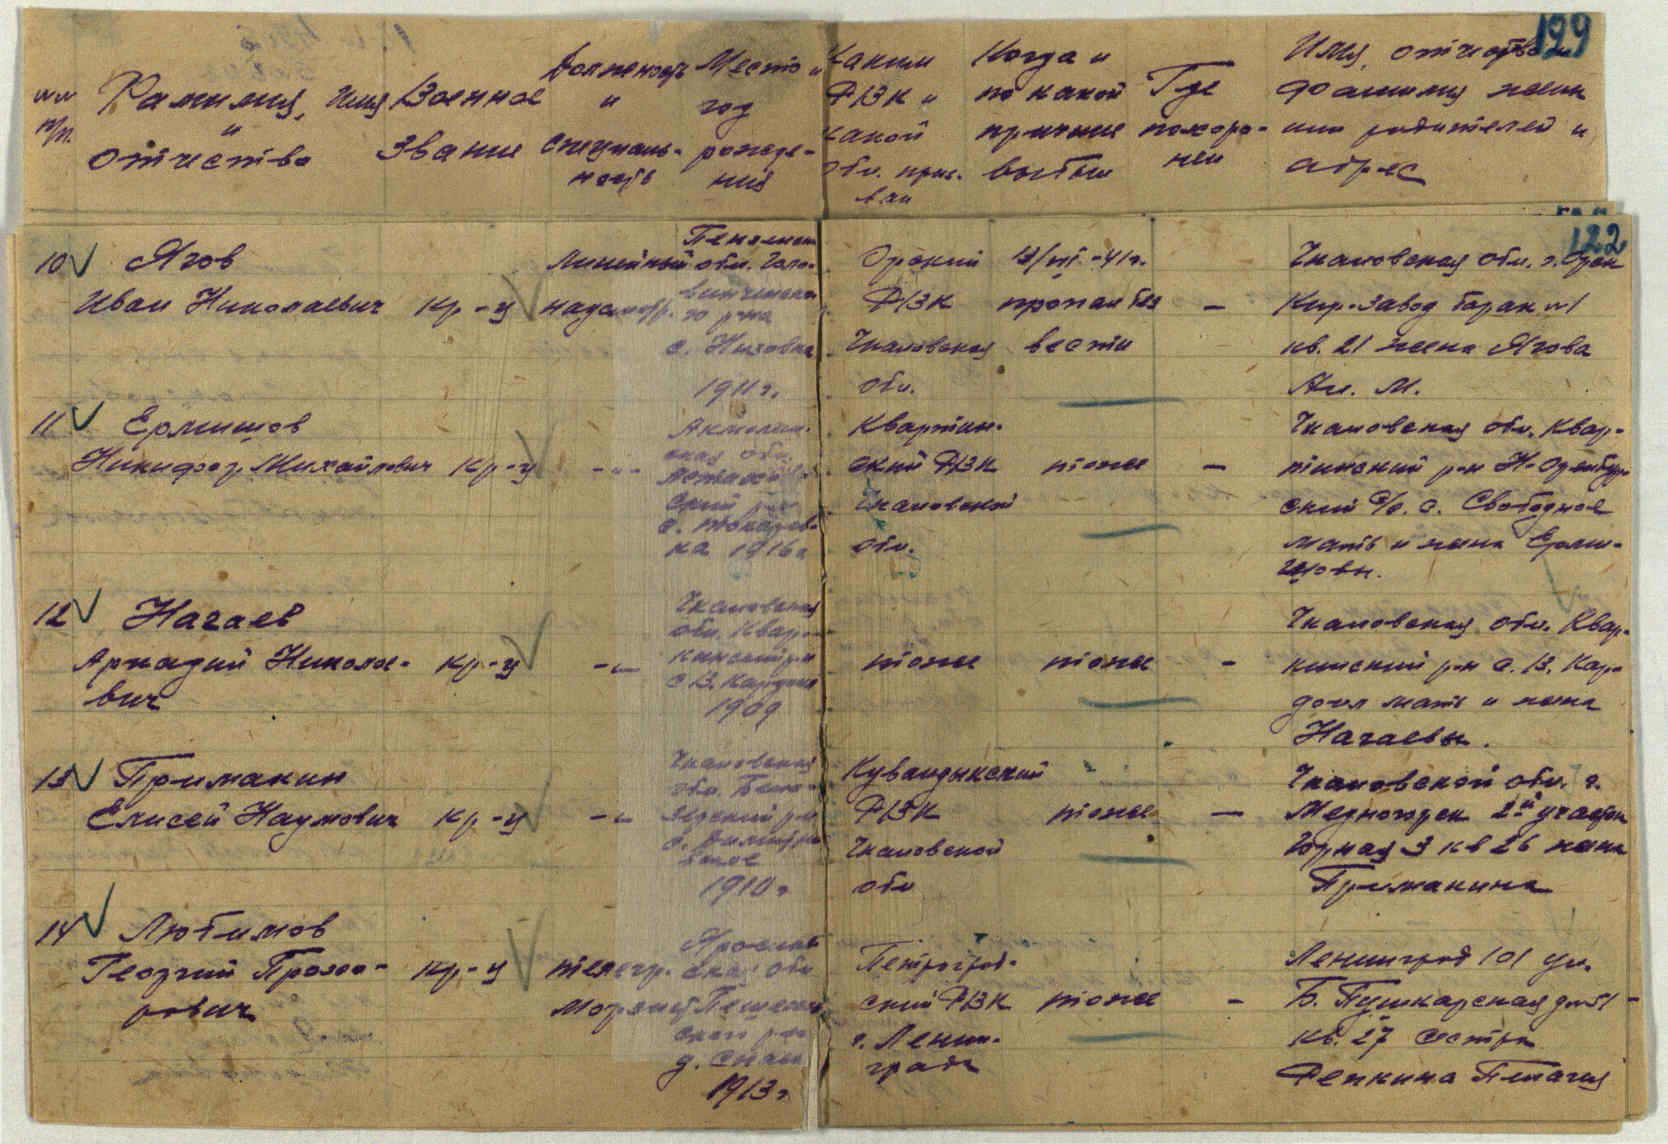 129
№№ п/п.
Фамилия, Имя и отчество
Военное звание
Должность и специальность
Место и год рождения
Каким РВК и какой обл. призван
Когда и по какой причине выбыл
Где похоронен
Имя, отчество и фамилия жены или родителей и адрес
122
10 Ягов
Иван Николаевич
кр-ц
Линейный надсмотр.
обл.
с. Низовка
1911 г.
Орский
РВК
Чкаловская
обл.
пропал без
вести
–
Чкаловская обл. г. Орск
Кир. завод барак №1
кв. 21 жена Ягова
Ан. М.
11 Ермишов
Никифор Михайлович
кр-ц
-"-
Акмолин-
ская обл.
1916 г.
Кваркин-
ский РВК
Чкаловской
обл.
тоже
–
Чкаловская обл. Квар-
кинский р-н Н-Оренбург-
ский с/с. с. Свободное
мать и жена Ермиш-
шовы.
12 Нагаев
Аркадий Николае-
вич
кр-ц
-"-
Чкаловская
обл. Квар-
кинский р-н
1909
тоже
тоже
–
Чкаловская обл. Квар-
кинский р-н с. В. Кар-
мать и жена
Нагаевы.
13 Примакин
Елисей Наумович
кр-ц
-"-
Чкаловская
1910 г.
Кувандыкский
РВК
Чкаловской
обл
тоже
–
Чкаловской обл. г.
Медногорск 2й участок
Горная 3 кв 26 жена
Примакина
14 Любимов
Георгий Прохо-
рович
кр-ц
телегр.
Морзист
Ярослав-
ская обл
1913 г.
Петроград-
ский РВК
г. Ленин-
града
тоже
–
Ленинград 101 ул.
Б. Пушкарская
кв. 27 сестра
Репкина Пелагия